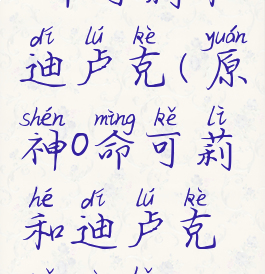 dí lú kè yuán
迪卢克(原
shén mìng kě lì
神0命可莉
hé dí lú kè
和迪卢克